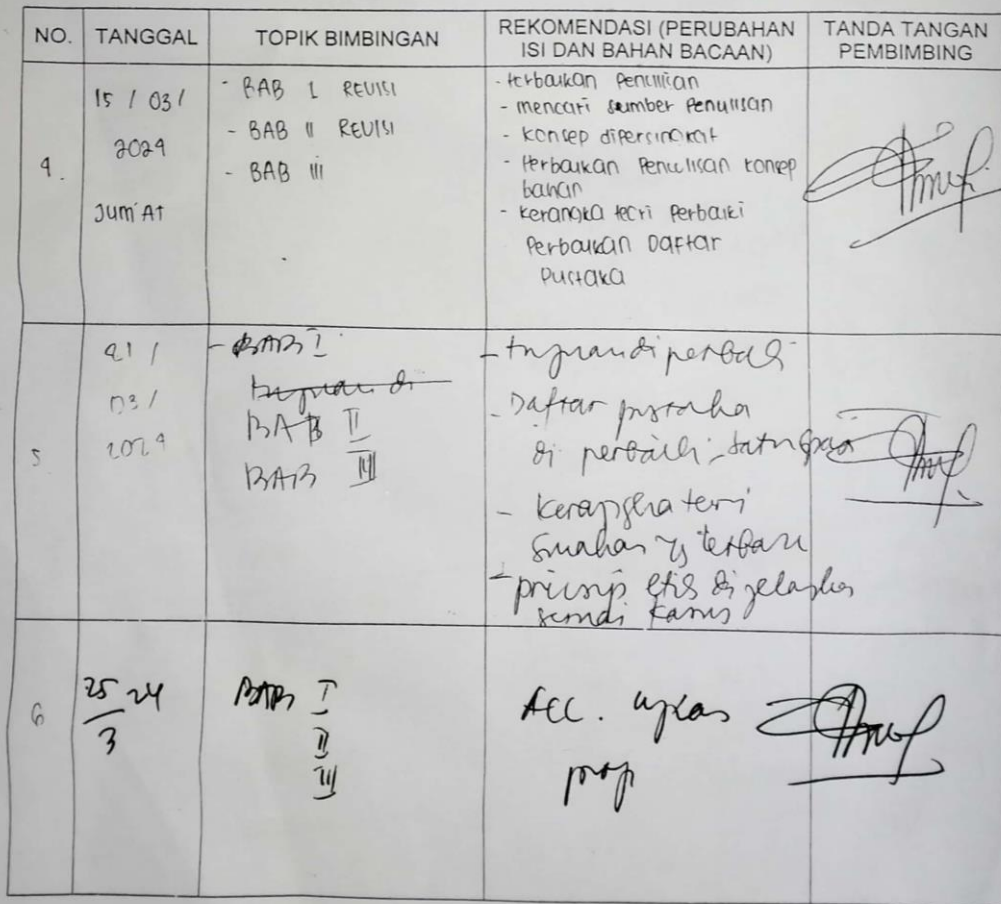 NO.
TANGGAL
TOPIK BIMBINGAN
REKOMENDASI (PERUBAHAN
ISI DAN BAHAN BACAAN)
TANDA TANGAN
PEMBIMBING
4.
15 / 03 /
2024
Jum'At
- BAB I REVISI
- BAB II REVISI
- BAB III
- Perbaikan Penulisan
- mencari sumber Penulisan
- Konsep dipersingkat
- Perbaikan Penulisan konsep
bahan
- Kerangka teori Perbaiki
Perbaikan Daftar
Pustaka
5
21 /
03 /
2024
- BAB I
BAB II
BAB III
- tujuan diperbaiki
- Daftar pustaka
di perbaiki
- Kerangka teori
yg terbaru
- prinsip etis di jelaskan
kasus
6
25 24
3
BAB I
II
III
ACC.
prop